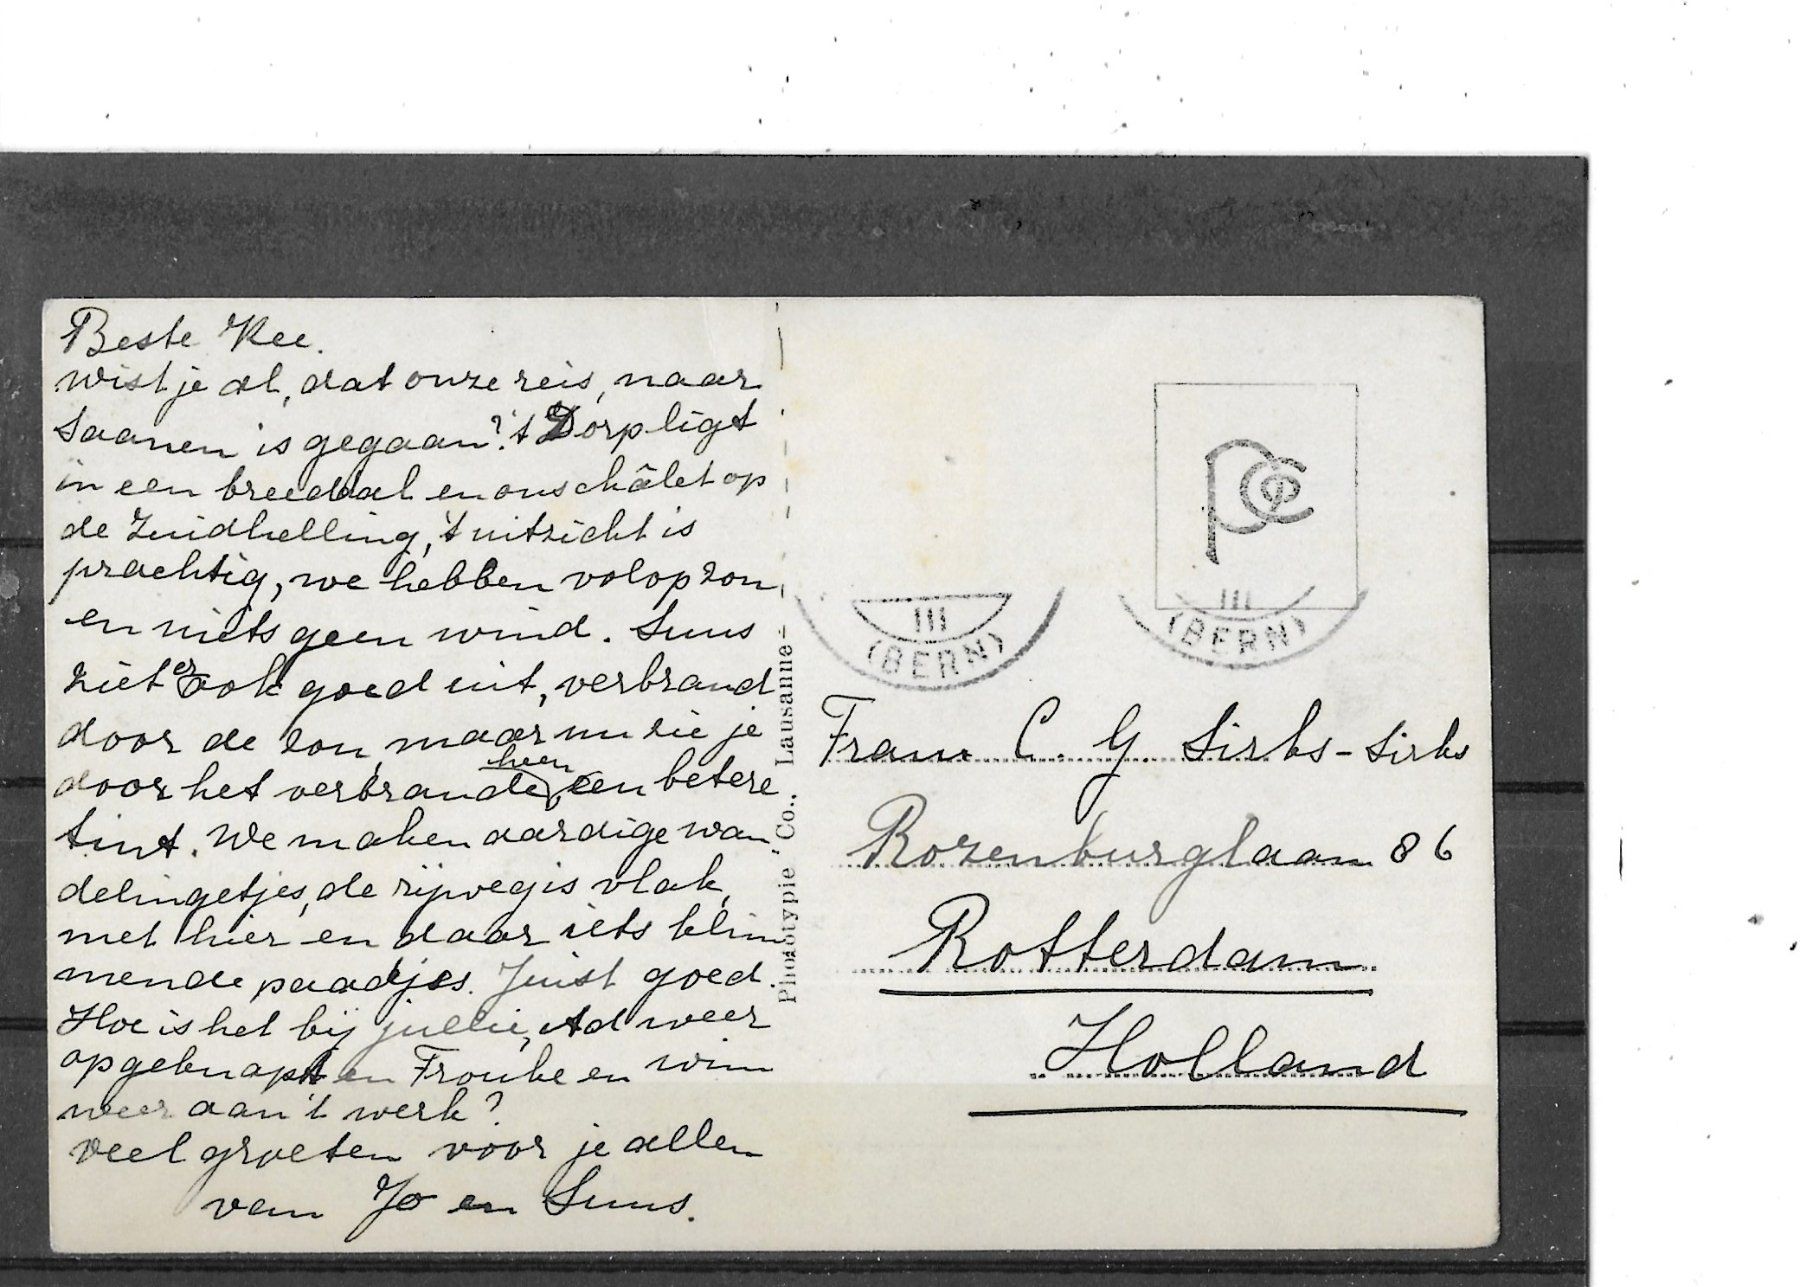 Beste Kee.
wist je al, dat onze reis, naar
Saanen is gegaan? 't Dorp ligt
in een breed dal en ons châlet op
de Zuidhelling, 't uitzicht is
prachtig, we hebben volop zon
en niets geen wind. Suus
ziet er ook goed uit, verbrand
door de zon, maar nu zie je
door het verbrande heen, een betere
tint. We maken aardige wan
delingetjes, de rijweg is vlak,
met hier en daar iets klim
mende paadjes. Juist goed.
Hoe is het bij jullie, Ad weer
opgeknapt en Frouke en Wim
weer aan 't werk?
Veel groeten voor je allen
van Jo en Suus.
Phototypie Co., Lausanne
PCo
III
(BERN)
III
(BERN)
Frau C. G. Sirks-Sirks
Rozenburglaan 86
Rotterdam
Holland